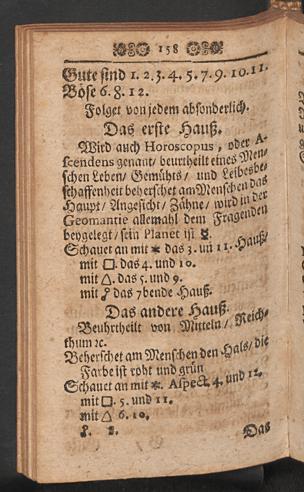 158
Gute sind 1. 2. 3. 4. 5. 7. 9. 10. 11.
Böse 6. 8. 12.
Folget von jedem absonderlich.
Das erste Hauß.
Wird auch Horoscopus, oder A-
scendens genant/ beurtheilt eines Men-
schen Leben/ Gemühts/ und Leibesbe-
schaffenheit beherschet am Menschen das
Haupt/ Angesicht/ Zähne/ wird in der
Geomantie allemahl dem Fragenden
beygelegt/ sein Planet ist ☿.
Schauet an mit ⚹ das 3. un 11. Hauß/
mit □. das 4. und 10.
mit △. das 5. und 9.
mit ☍ das 7bende Hauß.
Das andere Hauß.
Beuhrtheilt von Mitteln/ Reich-
thum ꝛc.
Beherschet am Menschen den Hals/ die
Farbe ist roht und grün
Schauet an mit ⚹. Aspect. 4. und 12.
mit □. 5. und 11.
mit △ 6. 10.
☍.
Das